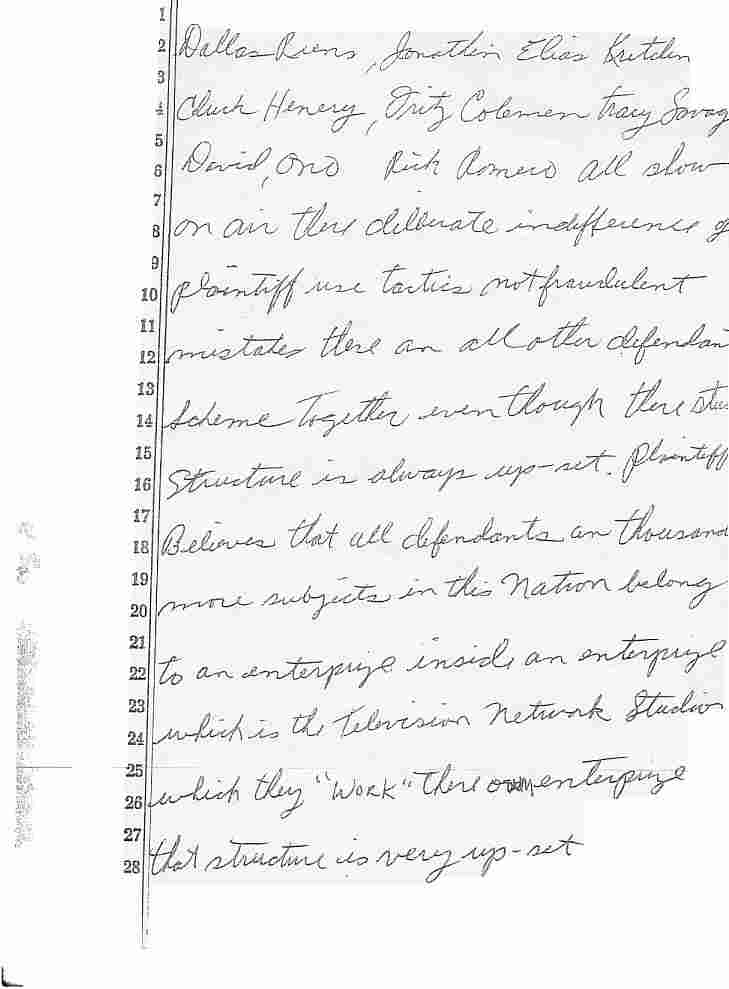 1
2 Dallas Riens, Jonathin Elias Kretchen
3
4 Chuck Henery, Fritz Colemen Tracy Savag
5
6 David, Ono Rick Romero all show
7
8 on air there deliberate indifference of
9
10 plaintiff use tactics not fraudulent
11
12 mistakes there an all other defendan
13
14 scheme Together even though there
15
16 structure is always up-set. Plaintiff
17
18 Believes that all defendants an thousand
19
20 more subjects in this Nation belong
21
22 to an enterprize inside an enterprize
23
24 which is the Television Network Studios
25
26 which they "WORK" there own enterprize
27
28 that structure is very up-set